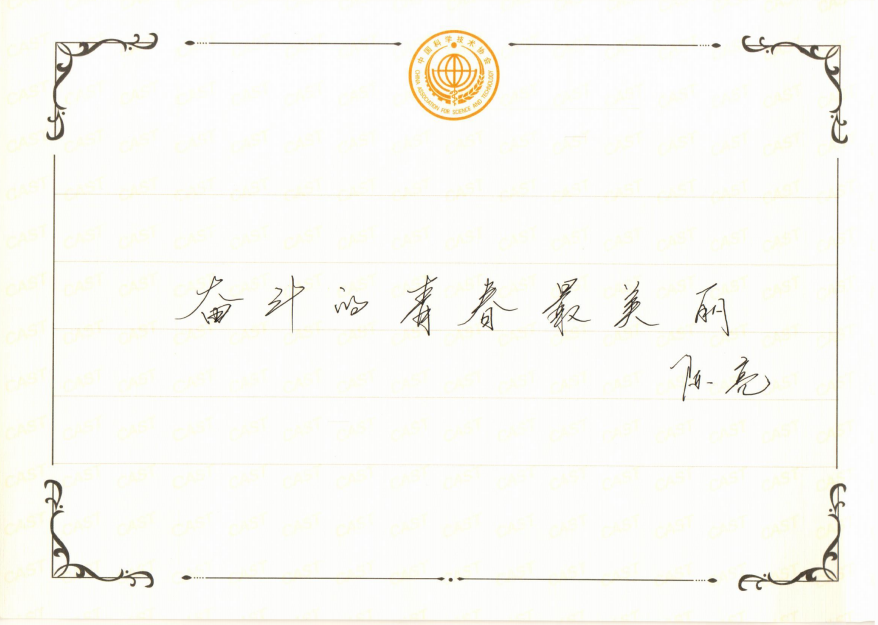 中国科学技术协会
CHINA ASSOCIATION FOR SCIENCE AND TECHNOLOGY
奋斗的青春最美丽
陈亮